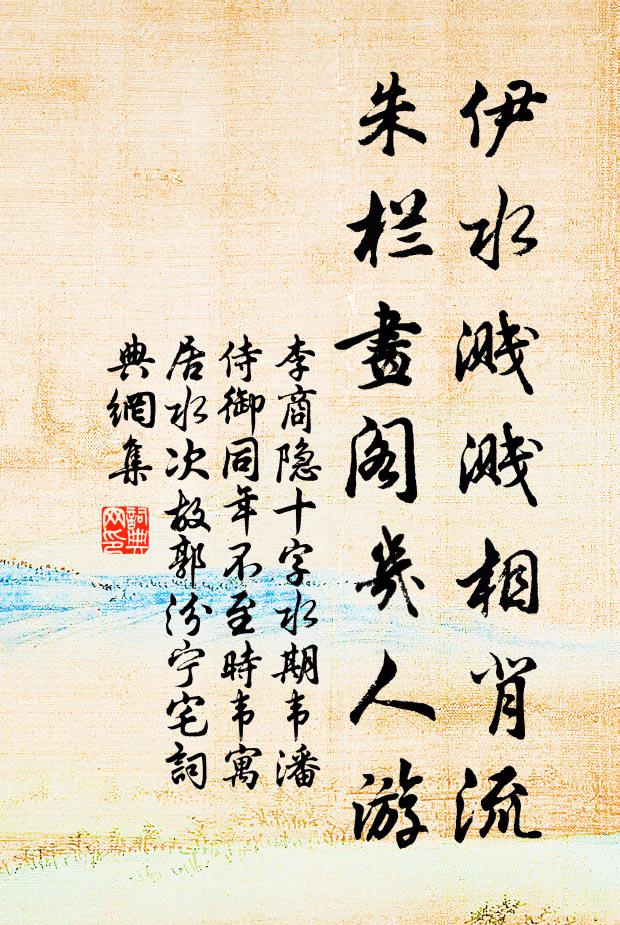 伊水溅溅相背流
朱栏畫阁幾人游
李商隐十字水期韦潘
侍御同年不至時韦寓
居水次故郭汾宁宅詞
典網集
詞典
网印